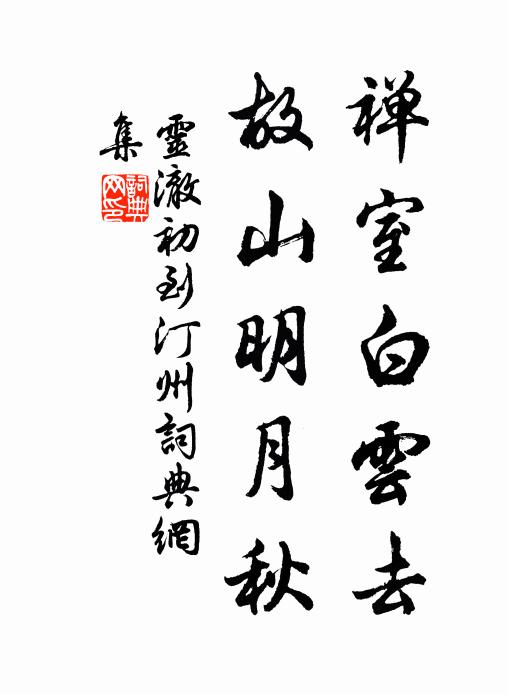 禅室白雲去
故山明月秋
靈澈初到汀州詞典網
集
詞典
网印